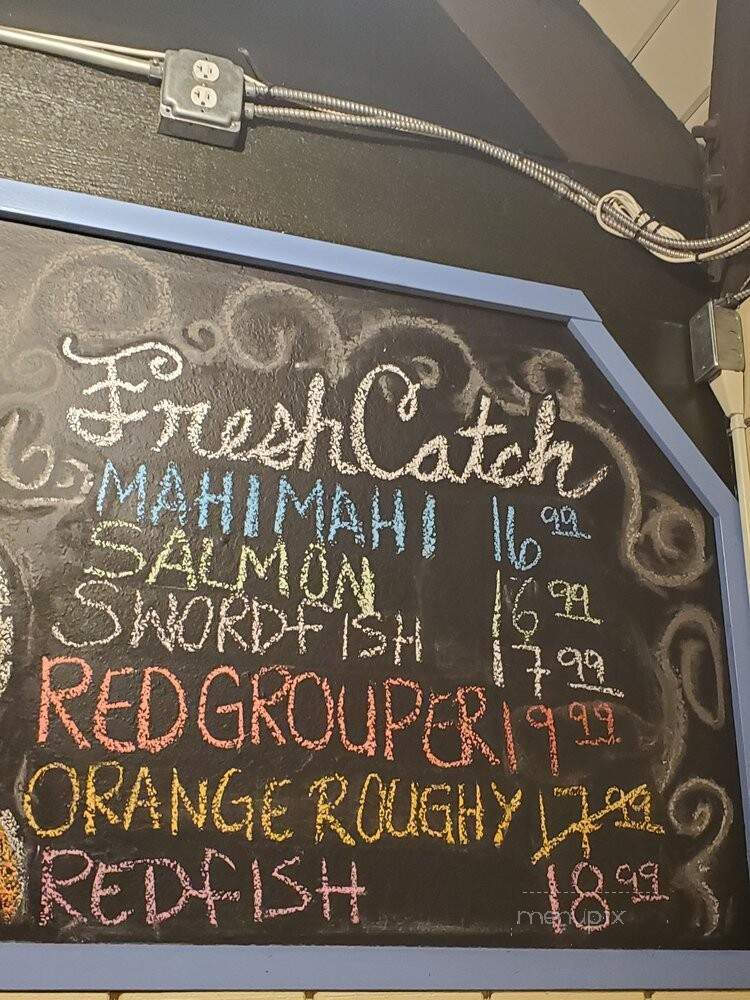 Fresh Catch
MAHI MAHI 16 99
SALMON 16 99
SWORDFISH 17 99
RED GROUPER 19 99
ORANGE ROUGHY 17 99
REDFISH 18 99
menupix